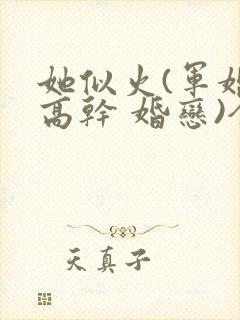 她似火(軍婚
高幹 婚戀)
天真子